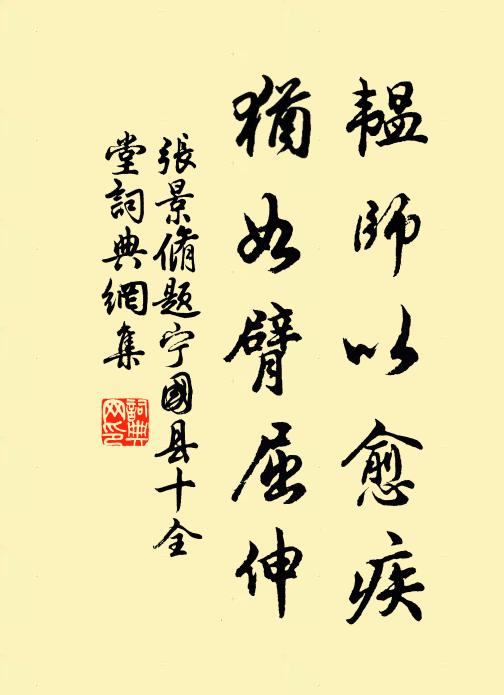 韞師以愈疾
猶如臂屈伸
張景脩題宁國县十全
堂詞典網集
詞典網印